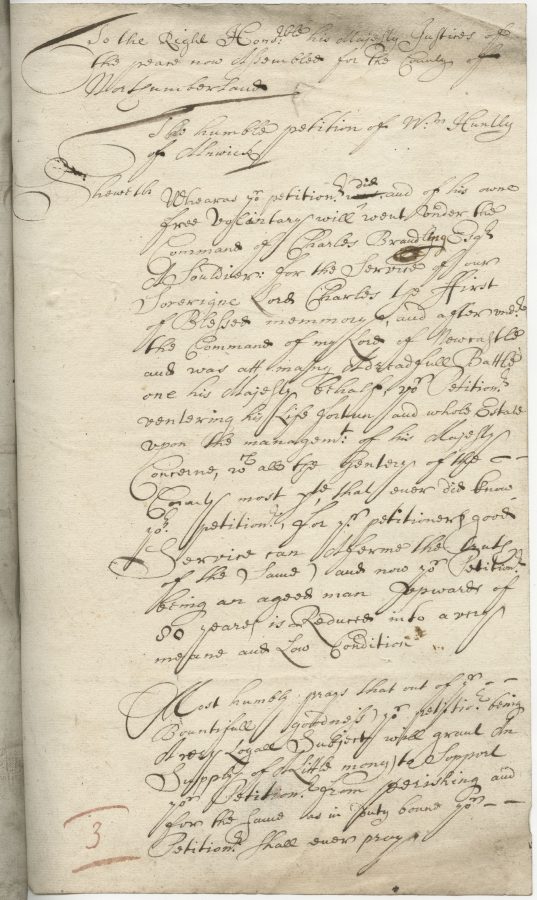 To the Right Hono:ble his Majestys Justices of
the peace now Assembled for the County of
Northumberland
The humble petition of Wm Huntly
of Alnwick
Sheweth
Whearas yor petitionr did and of his owne
free Vollintary will went Vonder the
Command of Charles Brandling Esqr
A Souldier: for the Service of our
Soverigne Lord Charles the ffirst
of Blessed memmory, and after
the Command of my Lord of Newcastle
and was att many A dreadfull Battle
one his Majestys behalf, yor Petitionr
ventering his Life fortun and whole Estate
upon the managemt of his Majestys
Concerne, wch all the Gentery of the
County most that ever did know
yor petitionr, for yr petitioners good
Service can Afferme the truth
of the Same) and now yor Petitionr
being an ageed man Upwards of
80 yeares is Reduced into a very
meane and Low Condition
Most humbly prays that out of yr
Bountifull goodness yor petitionr being
A very Loyall Subject will grant An
Supply of A Little mony to Support
yor Petitionr from perishing and
for the Same as in Duty bound yor
Petitionr Shall ever pray
3